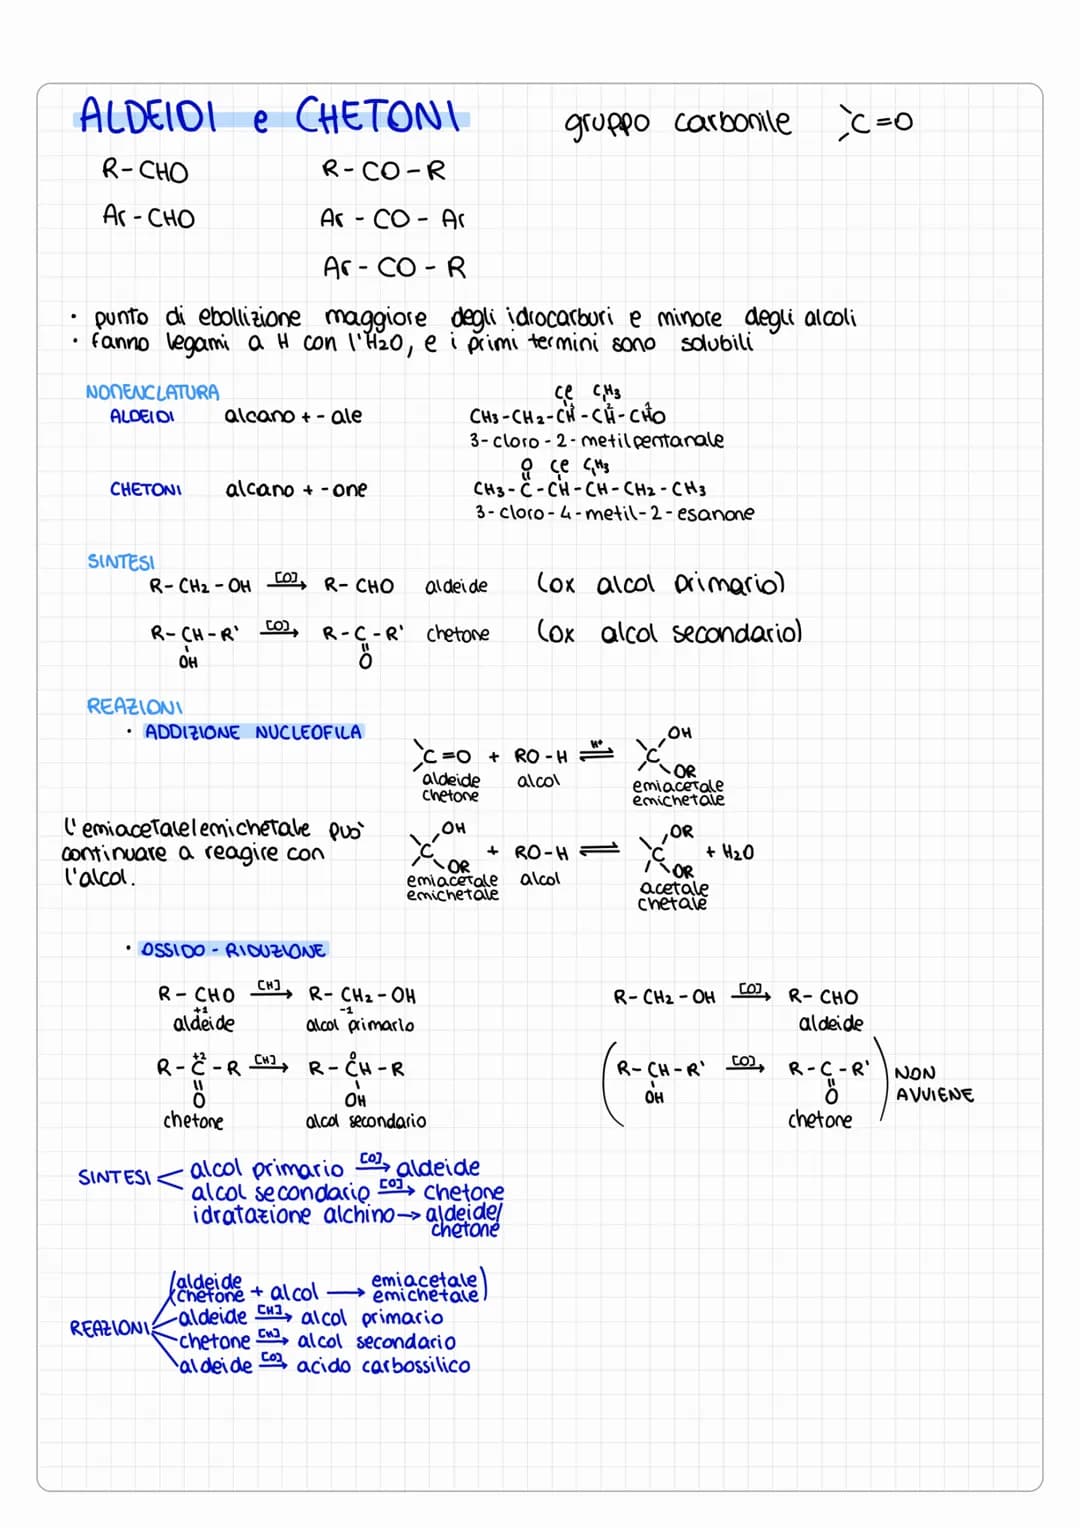 ALDEIDI e CHETONI gruppo carbonile C=O
R-CHO R-CO-R
Ar-CHO Ar-CO-Ar
Ar-CO-R
• punto di ebollizione maggiore degli idrocarburi e minore degli alcoli
• fanno legami a H con l'H2O, e i primi termini sono solubili
NOMENCLATURA
Cl CH3
ALDEIDI alcano + -ale CH3-CH2-CH-CH-CHO
3 2 1
3-cloro-2-metilpentanale
O Cl CH3
CHETONI alcano + -one CH3-C-CH-CH-CH2-CH3
3-cloro-4-metil-2-esanone
SINTESI
R-CH2-OH [O]→ R-CHO aldeide (ox alcol primario)
R-CH-R' [O]→ R-C-R' chetone (ox alcol secondario)
OH O
REAZIONI
• ADDIZIONE NUCLEOFILA
C=O + RO-H ⇌ H+ C OH OR
aldeide alcol emiacetale
chetone emichetale
l'emiacetale/emichetale può
continuare a reagire con
l'alcol.
C OH OR + RO-H ⇌ C OR OR + H2O
emiacetale alcol acetale
emichetale chetale
• OSSIDO-RIDUZIONE
R-CHO [H]→ R-CH2-OH R-CH2-OH [O]→ R-CHO
+1 -1
aldeide alcol primario aldeide
+2 0
R-C-R [H]→ R-CH-R (R-CH-R' [O]→ R-C-R') NON AVVIENE
O OH OH O
chetone alcol secondario chetone
SINTESI alcol primario [O]→ aldeide
alcol secondario [O]→ chetone
idratazione alchino → aldeide/
chetone
REAZIONI (aldeide
chetone + alcol → emiacetale
emichetale)
aldeide [H]→ alcol primario
chetone [H]→ alcol secondario
aldeide [O]→ acido carbossilico